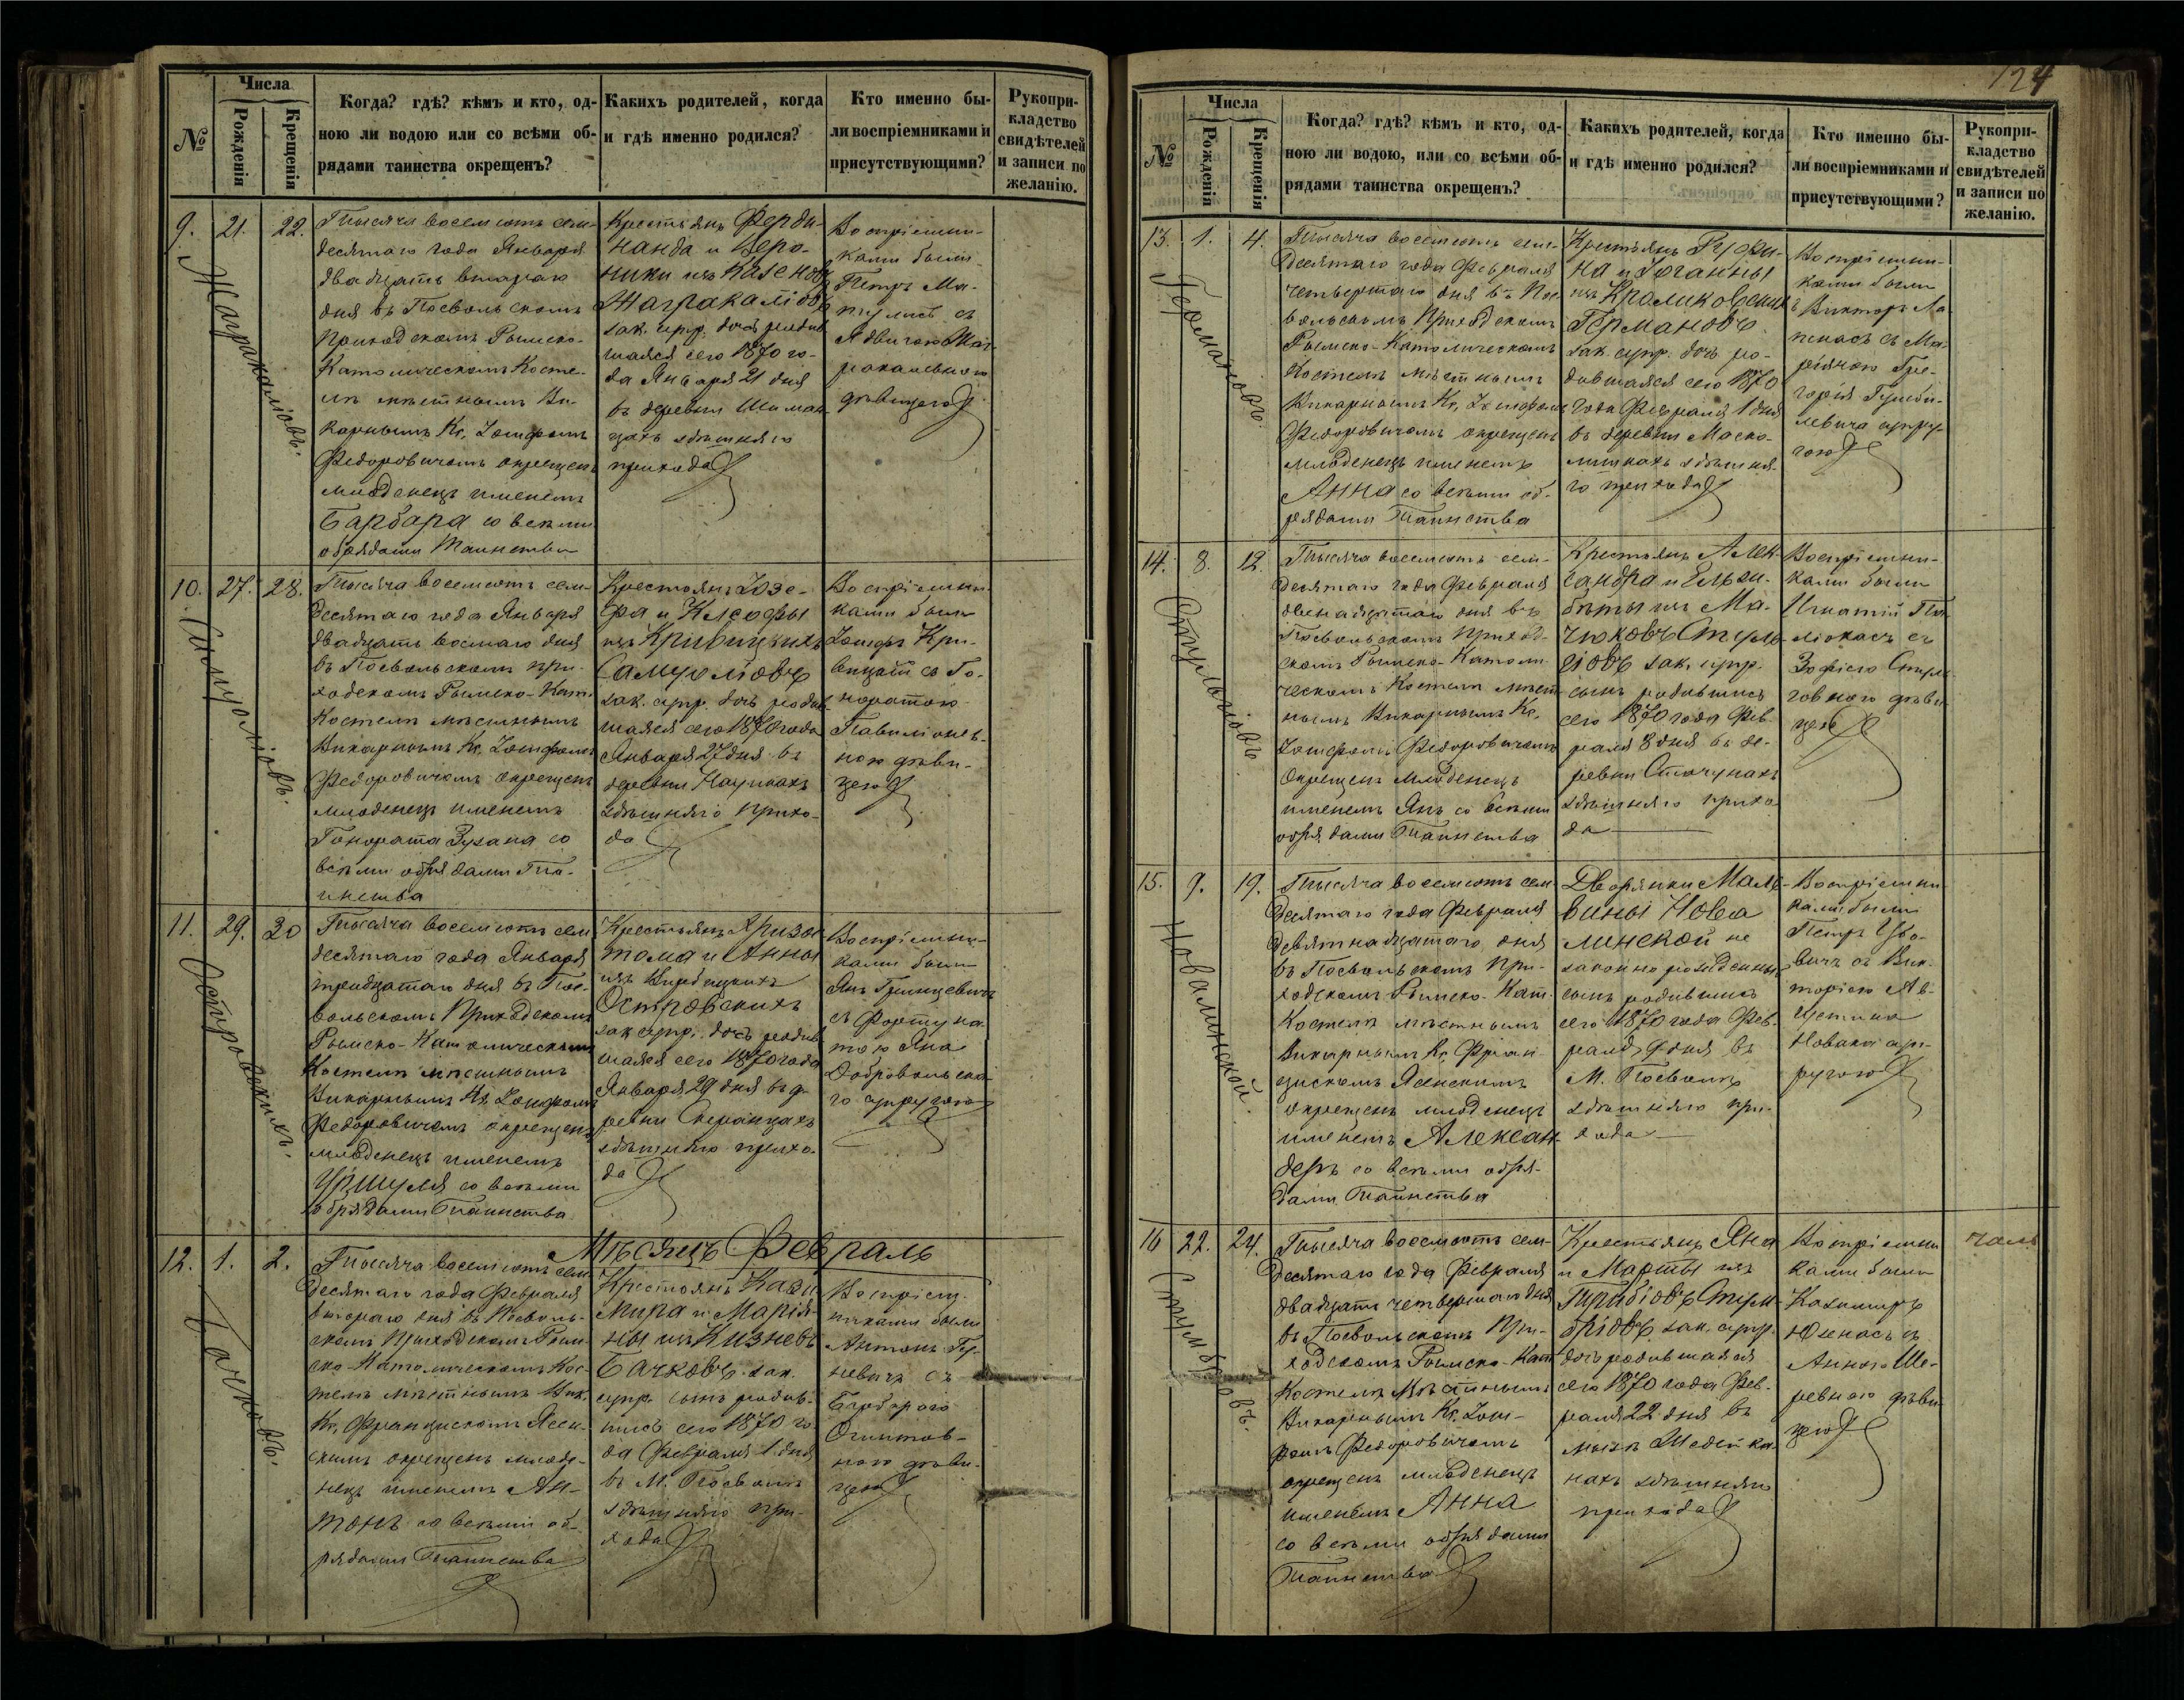 Числа
№
Рожденія
Крещенія
Когда? гдѣ? кѣмъ и кто, од-
ною ли водою или со всѣми об-
рядами таинства окрещенъ?
Какихъ родителей, когда
и гдѣ именно родился?
Кто именно бы-
ли воспріемниками и
присутствующими?
Рукопри-
кладство
свидѣтелей
и записи по
желанію.
9.
21.
22.
Тысяча восемьсотъ семь-
десятаго года Января
двадцать втораго
дня въ Посвольскомъ
Приходскомъ Римско-
Католическомъ Косте-
лѣ мѣстнымъ Ви-
карнымъ Кс. Іосифомъ
Федоровичемъ окрещенъ
младенецъ именемъ
Барбара со всѣми
обрядами Таинства
Крестьянъ Ферди-
нанда и Веро-
ники изъ
зак. супр. дочь родив-
шаяся сего 1870 го-
да Января 21 дня
въ деревни Шиман-
цахъ здѣшняго
прихода
Воспріемни-
ками были
Петръ Ма-
тулисъ съ
Ядвигою
дѣвицею
10.
27.
28.
Тысяча восемьсотъ семь-
десятаго года Января
двадцать восьмаго дня
въ Посвольскомъ при-
ходскомъ Римско-Кат.
Костелѣ мѣстнымъ
Викарнымъ Кс. Іосифомъ
Федоровичемъ окрещенъ
младенецъ именемъ
Гонората Зузана со
всѣми обрядами Та-
инства
Крестьянъ Іозе-
фа и Клеофы
изъ Кривицкихъ
зак. супр. дочь родив-
шаяся сего 1870 года
Января 27 дня въ
деревни
здѣшняго прихо-
да
Воспріемни-
ками были
Іосифъ Кри-
вицкій съ Го-
норатою
дѣви-
цею
11.
29.
30
Островскихъ.
Тысяча восемьсотъ семь
десятаго года Января
тридцатаго дня въ Пос-
вольскомъ Приходскомъ
Римско-Католическомъ
Костелѣ мѣстнымъ
Викарнымъ Кс. Іосифомъ
Федоровичемъ окрещенъ
младенецъ именемъ
Уршуля со всѣми
обрядами Таинства
Крестьянъ Хризос-
тома и Анны
изъ
Островскихъ
зак. супр. дочь родив
шаяся сего 1870 года
Января 29 дня въ де-
ревни
здѣшняго прихо-
да
Воспріемни-
ками были
Янъ Гринцевичъ
съ Фортуна-
тою Яна
Добровольска-
го супругою
Мѣсяцъ Февраль
12.
1.
2.
Бачковъ.
Тысяча восемьсотъ семь
десятаго года Февраля
втораго дня въ Посволь-
скомъ Приходскомъ Рим-
ско-Католическомъ Кос-
телѣ мѣстнымъ Вик.
Кс. Францискомъ Ясен-
скимъ окрещенъ младе-
нецъ именемъ Ан-
тонъ со всѣми об-
рядами Таинства
Крестьянъ Кази-
мира и Марія-
ны изъ
Бачковъ зак.
супр. сынъ родив-
шись сего 1870 го-
да Февраля 1 дня
въ М. Посволѣ
здѣшняго при-
хода
Воспріем-
никами были
Антонъ
съ
Барбарою
дѣви-
цею
124
Числа
№
Рожденія
Крещенія
Когда? гдѣ? кѣмъ и кто, од-
ною ли водою, или со всѣми об-
рядами таинства окрещенъ?
Какихъ родителей, когда
и гдѣ именно родился?
Кто именно бы-
ли воспріемниками и
присутствующими?
Рукопри-
кладство
свидѣтелей
и записи по
желанію.
13.
1.
4.
Германовъ.
Тысяча восемьсотъ семь-
десятаго года Февраля
четвертаго дня въ Пос-
вольскомъ Приходскомъ
Римско-Католическомъ
Костелѣ мѣстнымъ
Викарнымъ Кс. Іосифомъ
Федоровичемъ окрещенъ
младенецъ именемъ
Анна со всѣми об-
рядами Таинства
Крестьянъ Руфи-
на и Іоганны
изъ Кроликовскихъ
Германовъ
зак. супр. дочь ро-
дившаяся сего 1870
года Февраля 1 дня
въ деревни
здѣшня-
го прихода
Воспріемни-
ками были
Викторъ
съ Ма-
Гре-
горія
супру-
гою
14.
8.
12.
Тысяча восемьсотъ семь-
десятаго года Февраля
двенадцатаго дня въ
Посвольскомъ приход-
скомъ Римско-Католи-
ческомъ Костелѣ мѣст-
нымъ Викарнымъ Кс.
Іосифомъ Федоровичемъ
окрещенъ младенецъ
именемъ Янъ со всѣми
обрядами Таинства
Крестьянъ Алек-
сандра и Ельжи-
бѣты изъ
зак. супр.
сынъ родившись
сего 1870 года Фев-
раля 8 дня въ де-
ревни
здѣшняго прихо-
да
Воспріемни-
ками были
Игнатій
съ
Зофіею
дѣви-
цею
15.
9.
19.
Новалинской.
Тысяча восемьсотъ семь
десятаго года Февраля
девятнадцатаго дня
въ Посвольскомъ При-
ходскомъ Римско-Кат.
Костелѣ мѣстнымъ
Викарнымъ Кс. Фран-
цискомъ Ясенскимъ
окрещенъ младенецъ
именемъ Алексан-
деръ со всѣми обря-
дами Таинства
Дворянки Маль-
вины Нова
линской не
законно рожденный
сынъ родившись
сего 1870 года Фев-
раля 9 дня въ
М. Посволѣ
здѣшняго при-
хода
Воспріемни-
ками были
Петръ
съ Вик-
торіею Ав-
густина
Новака суп-
ругою
16
22.
24.
Тысяча восемьсотъ семь-
десятаго года Февраля
двадцать четвертаго дня
въ Посвольскомъ При-
ходскомъ Римско-Кат
Костелѣ Мѣстнымъ
Викарнымъ Кс. Іоси-
фомъ Федоровичемъ
окрещенъ младенецъ
именемъ Анна
со всѣми обрядами
Таинства
Крестьянъ Яна
и Марты изъ
зак. супр.
дочь родившаяся
сего 1870 года Фев-
раля 22 дня въ
здѣшняго
прихода
Воспріемни
ками были
Казимиръ
съ
Анною
дѣви-
цею